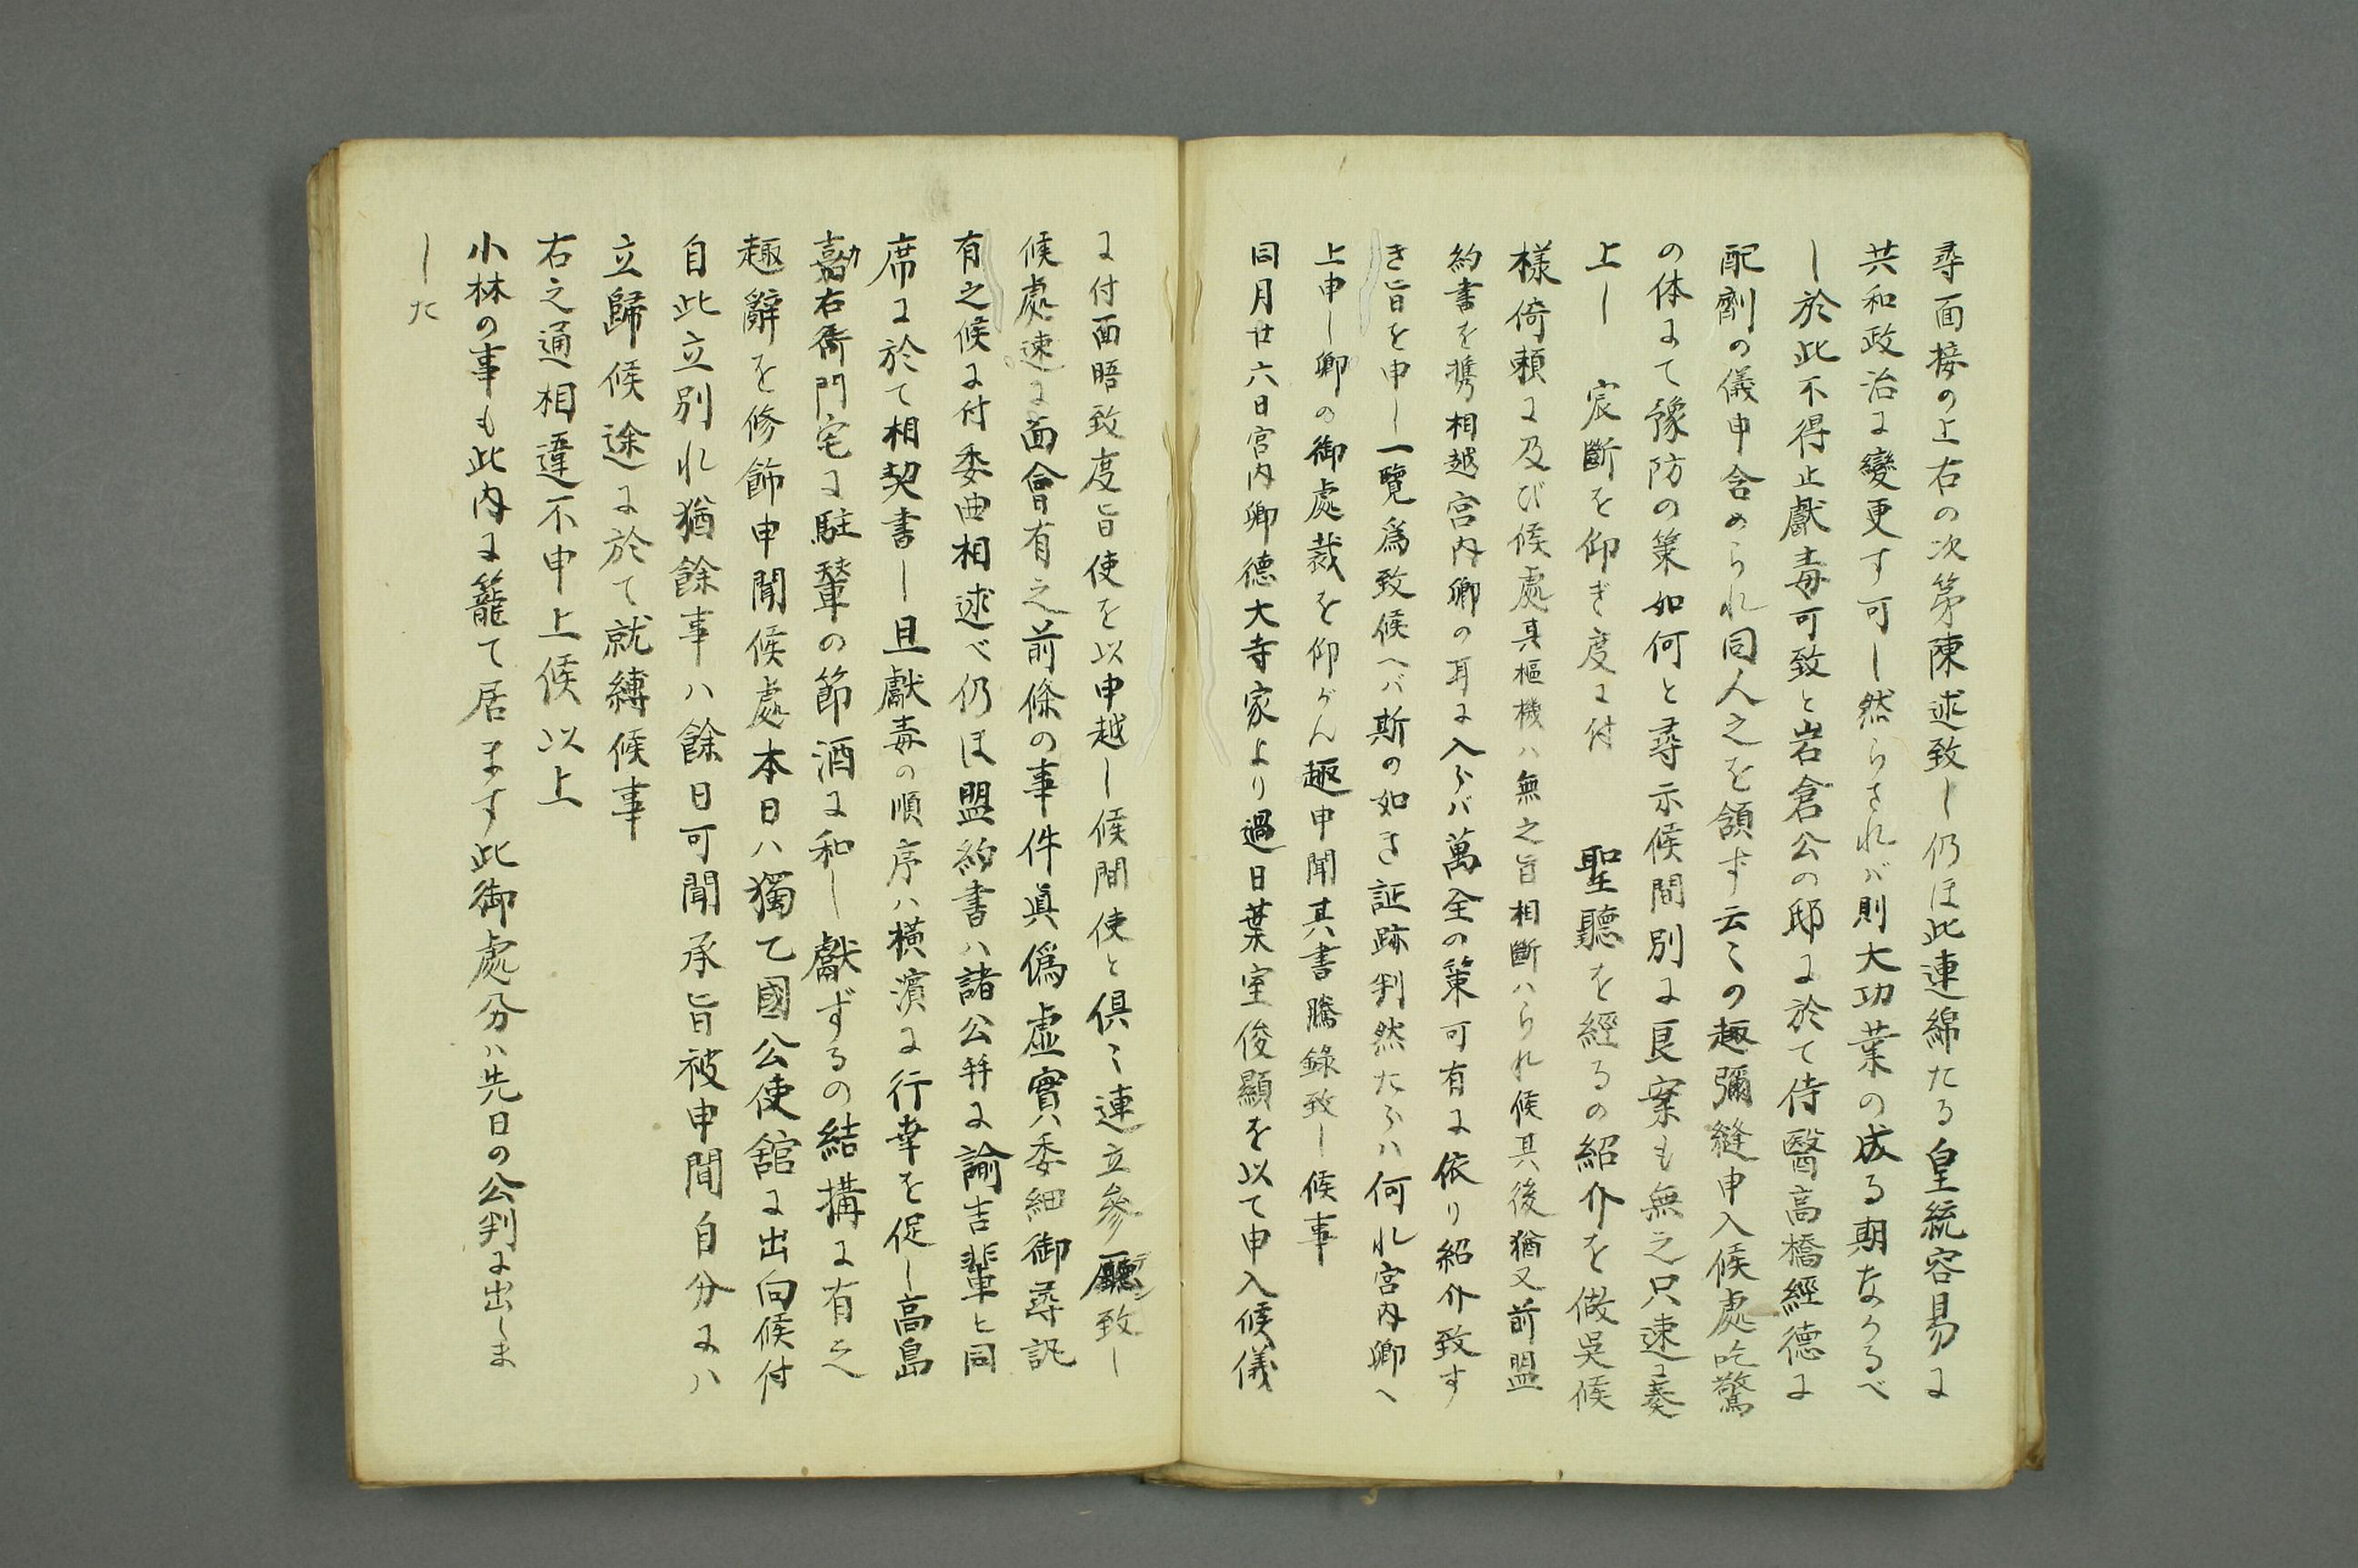 尋面接の上右の次第陳述致し仍ほ此連綿たる皇統容易に
共和政治に變更す可し然らされバ則大功業の成る期なかるべ
し於此不得止獻毒可致と岩倉公の邸に於て侍醫高橋經德に
配劑の儀申含められ同人之を領す云々の趣彌縫申入候處吃驚
の体にて豫防の策如何と尋示候間別に良案も無之只速に奏
上し　宸斷を仰ぎ度に付　聖聽を經るの紹介を做呉候
樣倚賴に及び候處其樞機ハ無之旨相斷ハられ候其後猶又前盟
約書を携相越宮内卿の耳に入らバ萬全の策可有に依り紹介致す
き旨を申し一覽爲致候ヘバ斯の如き証跡判然たらハ何れ宮内卿へ
上申し卿の御處裁を仰がん趣申聞其書騰錄致し候事
同月廿六日宮内卿德大寺家より過日葉室俊顯を以て申入候儀
に付面晤致度旨使を以申越し候間使と倶々連立參廳致し
候處速に面會有之前條の事件眞僞虚實ハ委細御尋訊
有之候に付委曲相述べ仍ほ盟約書ハ諸公幷に諭吉輩と同
席に於て相契書し且獻毒の順序ハ橫濱に行幸を促し高島
嘉右衞門宅に駐輦の節酒に和し獻ずるの結搆に有之
趣辭を修飾申聞候處本日ハ獨乙國公使舘に出向候付
自此立別れ猶餘事ハ餘日可聞承旨被申聞自分にハ
立歸候途に於て就縛候事
右之通相違不申上候以上
小林の事も此内に籠て居ます此御處分ハ先日の公判に出しま
した